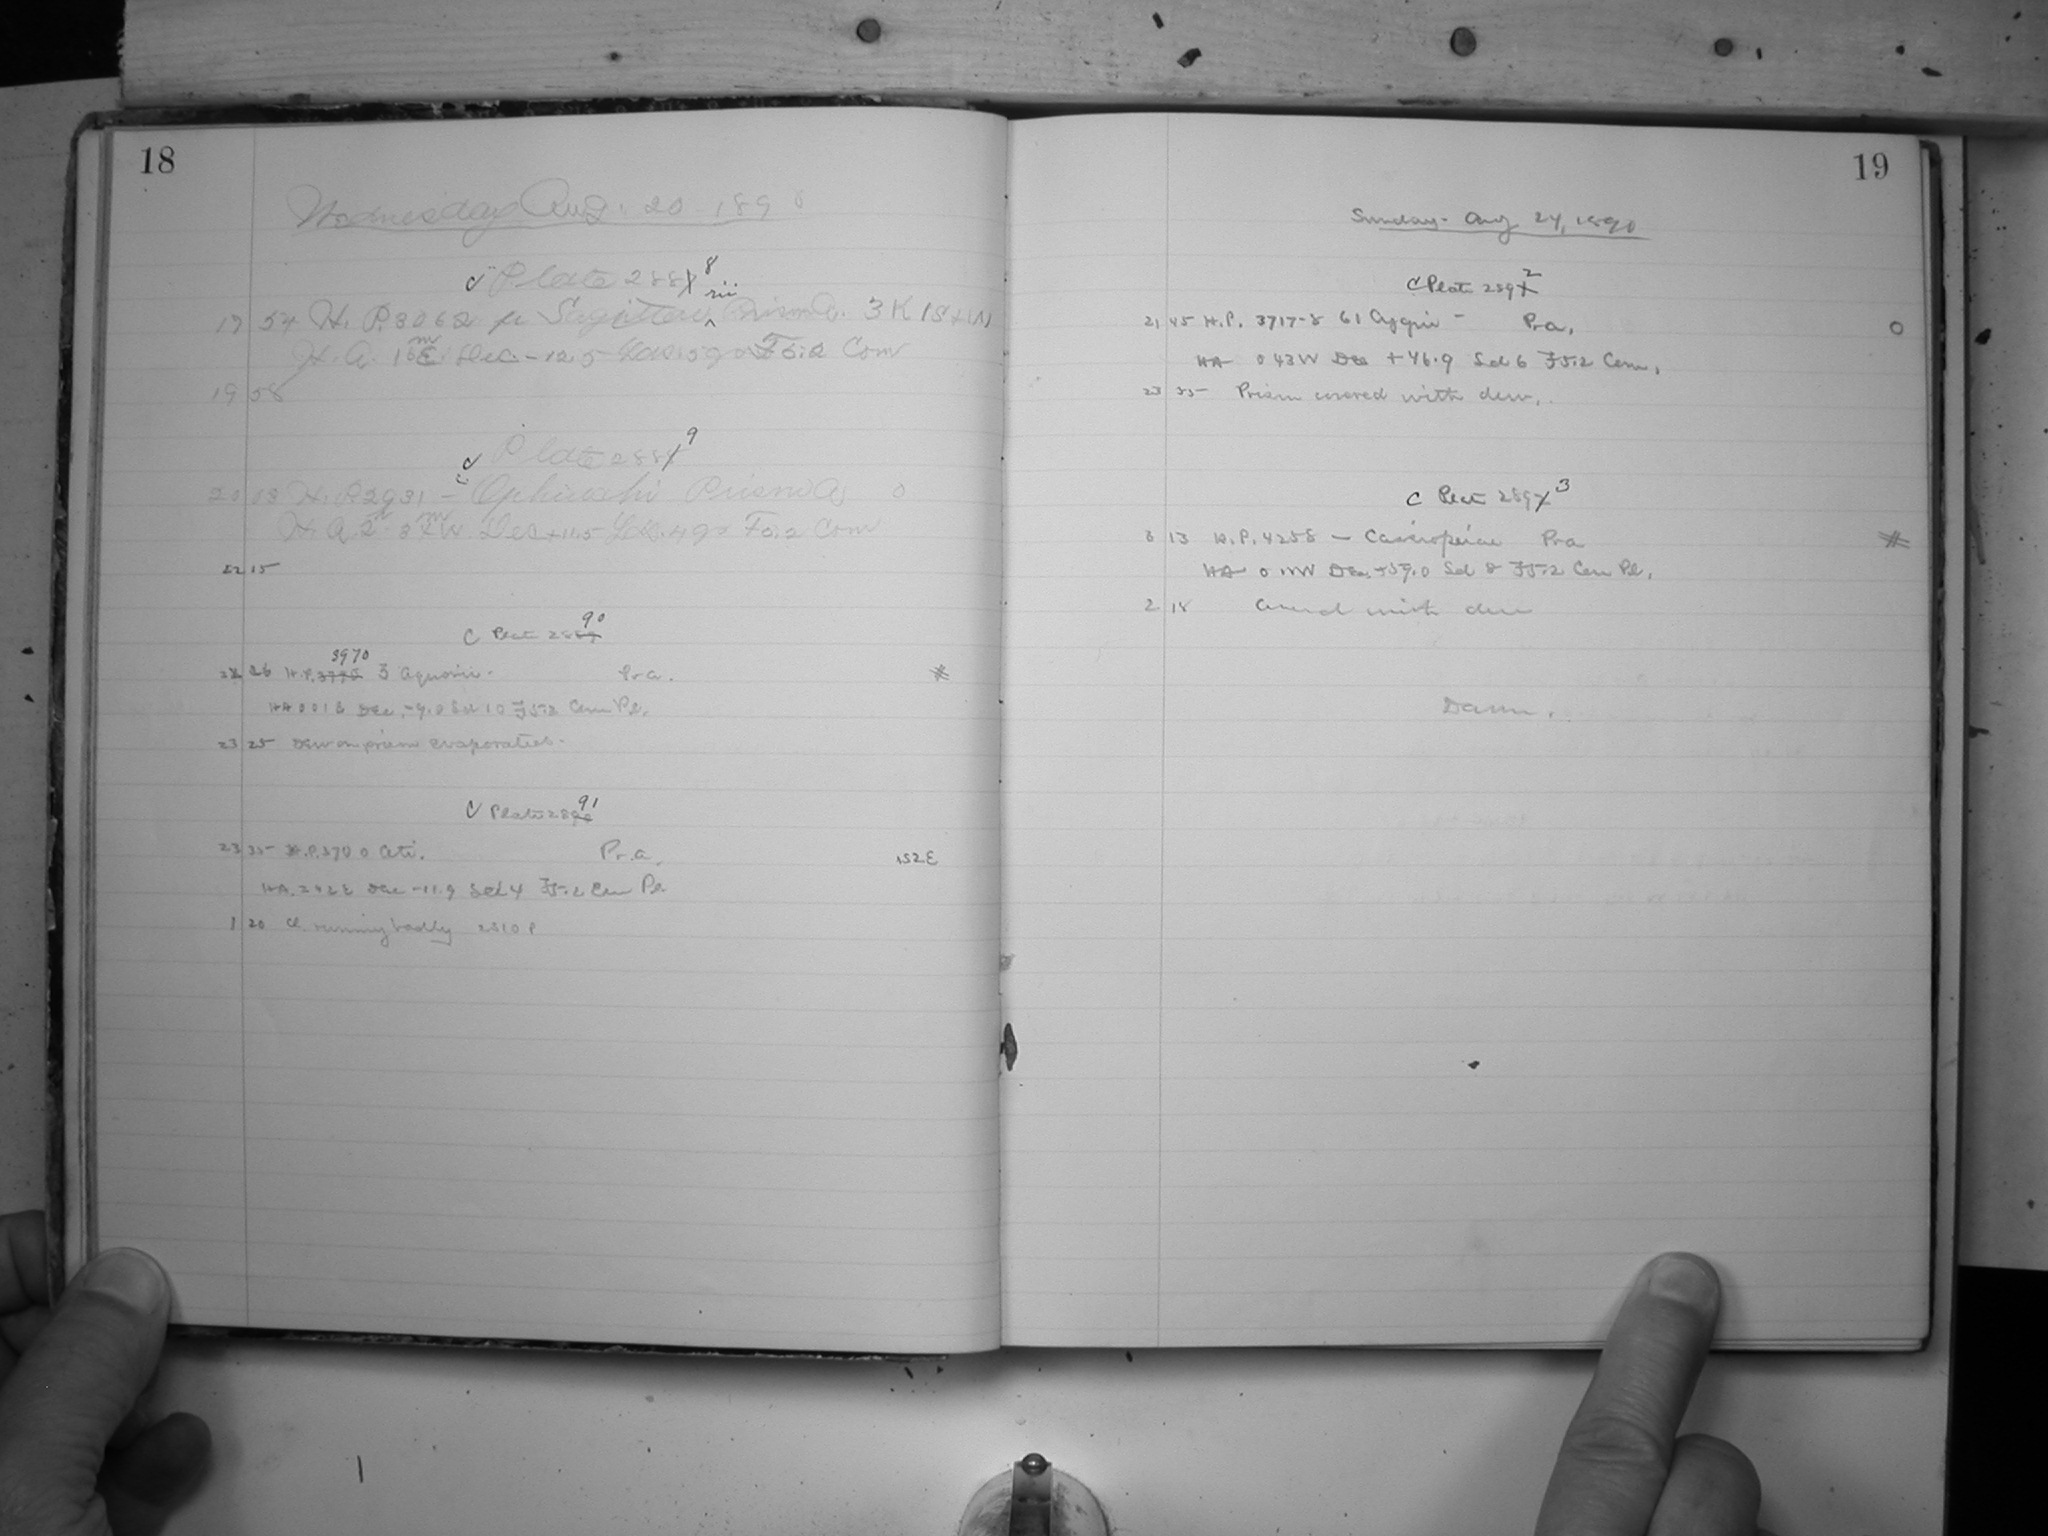 18
Wednesday Aug. 20 1890
C Plate 2887 8
19 54 H.P. 3062 μ Sagittarii Prism 3 K 1S+1N
H.A. 16m E. Dec. -12.5 F5.2 Com
19 58
C Plate 288 9
20 03 H.P. 2931 - Ophiuchi Prism A 0
H.A. 2h 3 m W. Dec +11.5 F5.2 Com
22 15
C Plate 2889 90
3970
26 H.P. 3 Aquarii - Pr a.
HA 001 E Dec. -9.0 Scd 10 F5.2 Cem Pl.
23 25 Dew on prism evaporated.
C Plate 2890 91
23 35 H.P. 370 0 Ceti. Pr. a. 1S2E
HA. 242 E Dec -11.9 Scd 4 F5.2 Cem Pl.
1 20 Cl. running badly 2510 P
19
Sunday - Aug 24, 1890
C Plate 289 2
21 45 H.P. 3717-8 61 Cygni - Pr a. 0
HA 0 43 W Dec +46.9 Scd 6 F5.2 Cem.
23 35 Prism covered with dew.
C Plate 289 3
13 H.P. 4258 - Cassiopeiae Pr a
HA 0 W Dec. +59.0 Scd 8 F5.2 Cem Pl.
2 18 Covered with dew
Dawn.